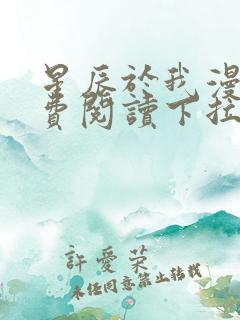 星辰於我漫
費閱讀下拉
許愛荣
未任同意禁止转载